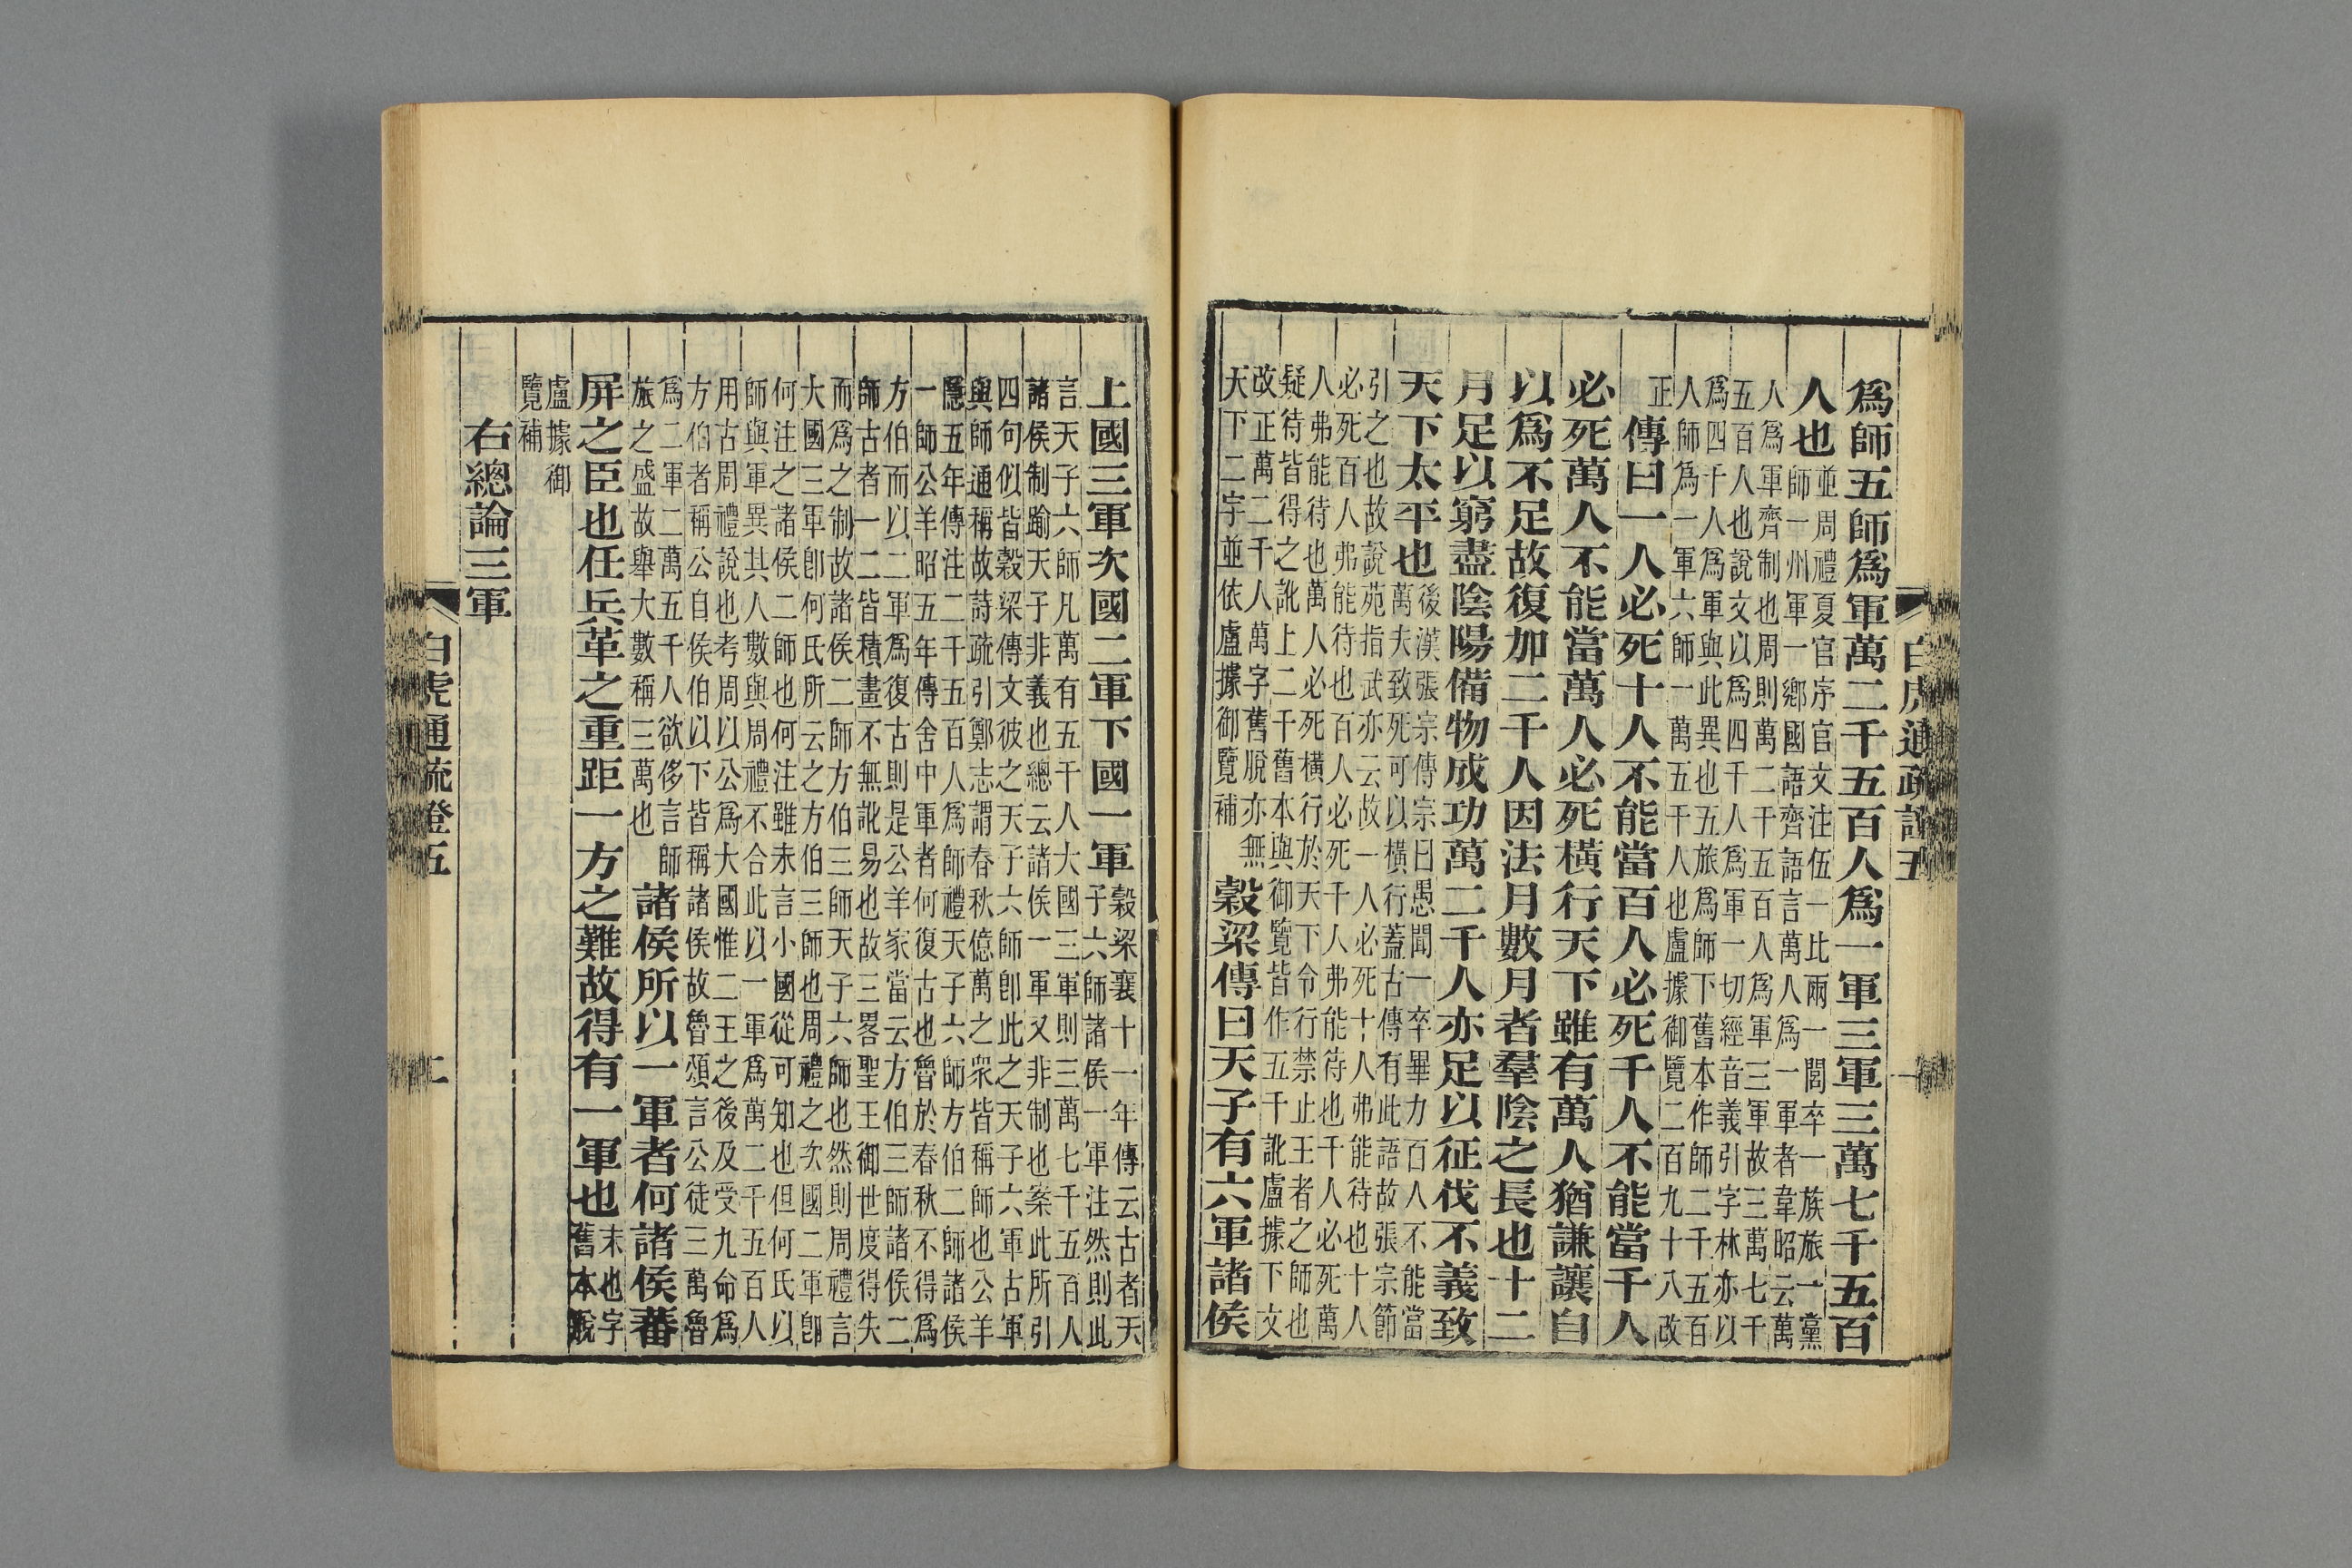 白虎通疏證五
一
爲師五師爲軍萬二千五百人爲一軍三軍三萬七千五百
人也
並周禮夏官序官文注伍一比兩一閭卒一族旅一黨
師一州軍一鄉國語齊語言萬人爲一軍者韋昭云萬
人爲軍齊制也周則萬二千五百人爲軍三軍故三萬七千
五百人也說文以爲四千人爲軍一切經音義引字林亦以
爲四千人爲軍與此異也五旅爲師下舊本作師二千五百
人師爲一軍六師一萬五千人也盧據御覽二百九十八改
正
傳曰一人必死十人不能當百人必死千人不能當千人
必死萬人不能當萬人必死橫行天下雖有萬人猶謙讓自
以爲不足故復加二千人因法月數月者羣陰之長也十二
月足以窮盡陰陽備物成功萬二千人亦足以征伐不義致
天下太平也
後漢張宗傳宗曰愚聞一卒畢力百人不能當
萬夫致死可以橫行蓋古傳有此語故張宗節
引之也故說苑指武亦云故一人必死十人弗能待也十人
必死百人弗能待也百人必死千人弗能待也千人必死萬
人弗能待也萬人必死橫行於天下令行禁止王者之師也
疑待皆得之訛上二千舊本與御覽皆作五千訛盧據下文
改正萬二千人萬字舊脫亦無
天下二字並依盧據御覽補
穀梁傳曰天子有六軍諸侯
上國三軍次國二軍下國一軍
穀梁襄十一年傳云古者天
子六師諸侯一軍注然則此
言天子六師凡萬有五千人大國三軍則三萬七千五百人
諸侯制踰天子非義也總云諸侯一軍又非制也案此所引
四句似皆穀梁傳文彼之天子六師卽此之天子六軍古軍
與師通稱故詩疏引鄭志謂春秋億萬之眾皆稱師也公羊
隱五年傳注二千五百人爲師禮天子六師方伯二師諸侯
一師公羊昭五年傳舍中軍者何復古也魯於春秋不得爲
方伯而以二軍爲復古則是公羊家當云方伯三師諸侯二
師古者一二皆積畫不無訛易也故三畧聖王御世度得失
而爲之制故諸侯二師方伯三師天子六師也然則周禮言
大國三軍卽何氏所云之方伯三師也周禮之次國二軍卽
何注之諸侯二師也何注雖未言小國從可知也但何氏以
師與軍異其人數與周禮不合此以一軍爲萬二千五百人
用古周禮說也考周以公爲大國惟二王之後及受九命爲
方伯者稱公自侯伯以下皆稱諸侯故魯頌言公徒三萬魯
爲二軍二萬五千人欲侈言師
旅之盛故舉大數稱三萬也
諸侯所以一軍者何諸侯蕃
屏之臣也任兵革之重距一方之難故得有一軍也
末也字
舊本脫
盧據御
覽補
右總論三軍
白虎通疏證五